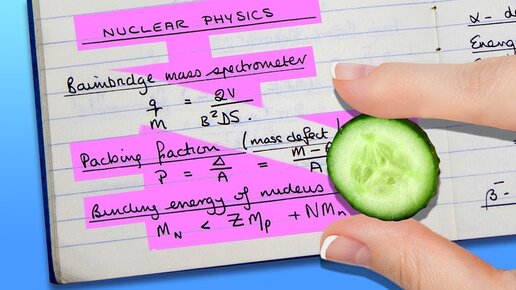 NUCLEAR PHYSICS
Bainbridge mass spectrometer
q/m = 2V/B²DS.
Packing fraction (mass defect
P = Δ/A = M-/A
Binding energy of nucleus
M_N < ZM_p + NM_n
α - d
Energ
β⁻ -